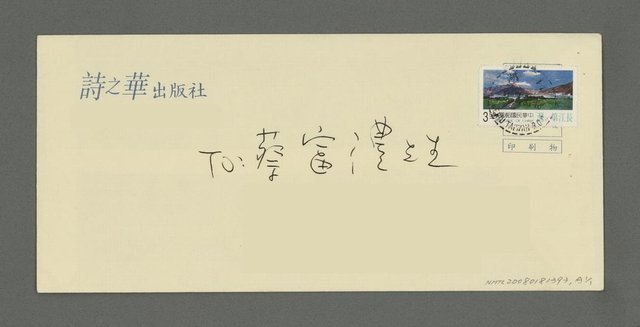 詩之華出版社
3
中華民國郵票
印刷物
To: 蔡富澧先生
NMTL20080181393, A1/1